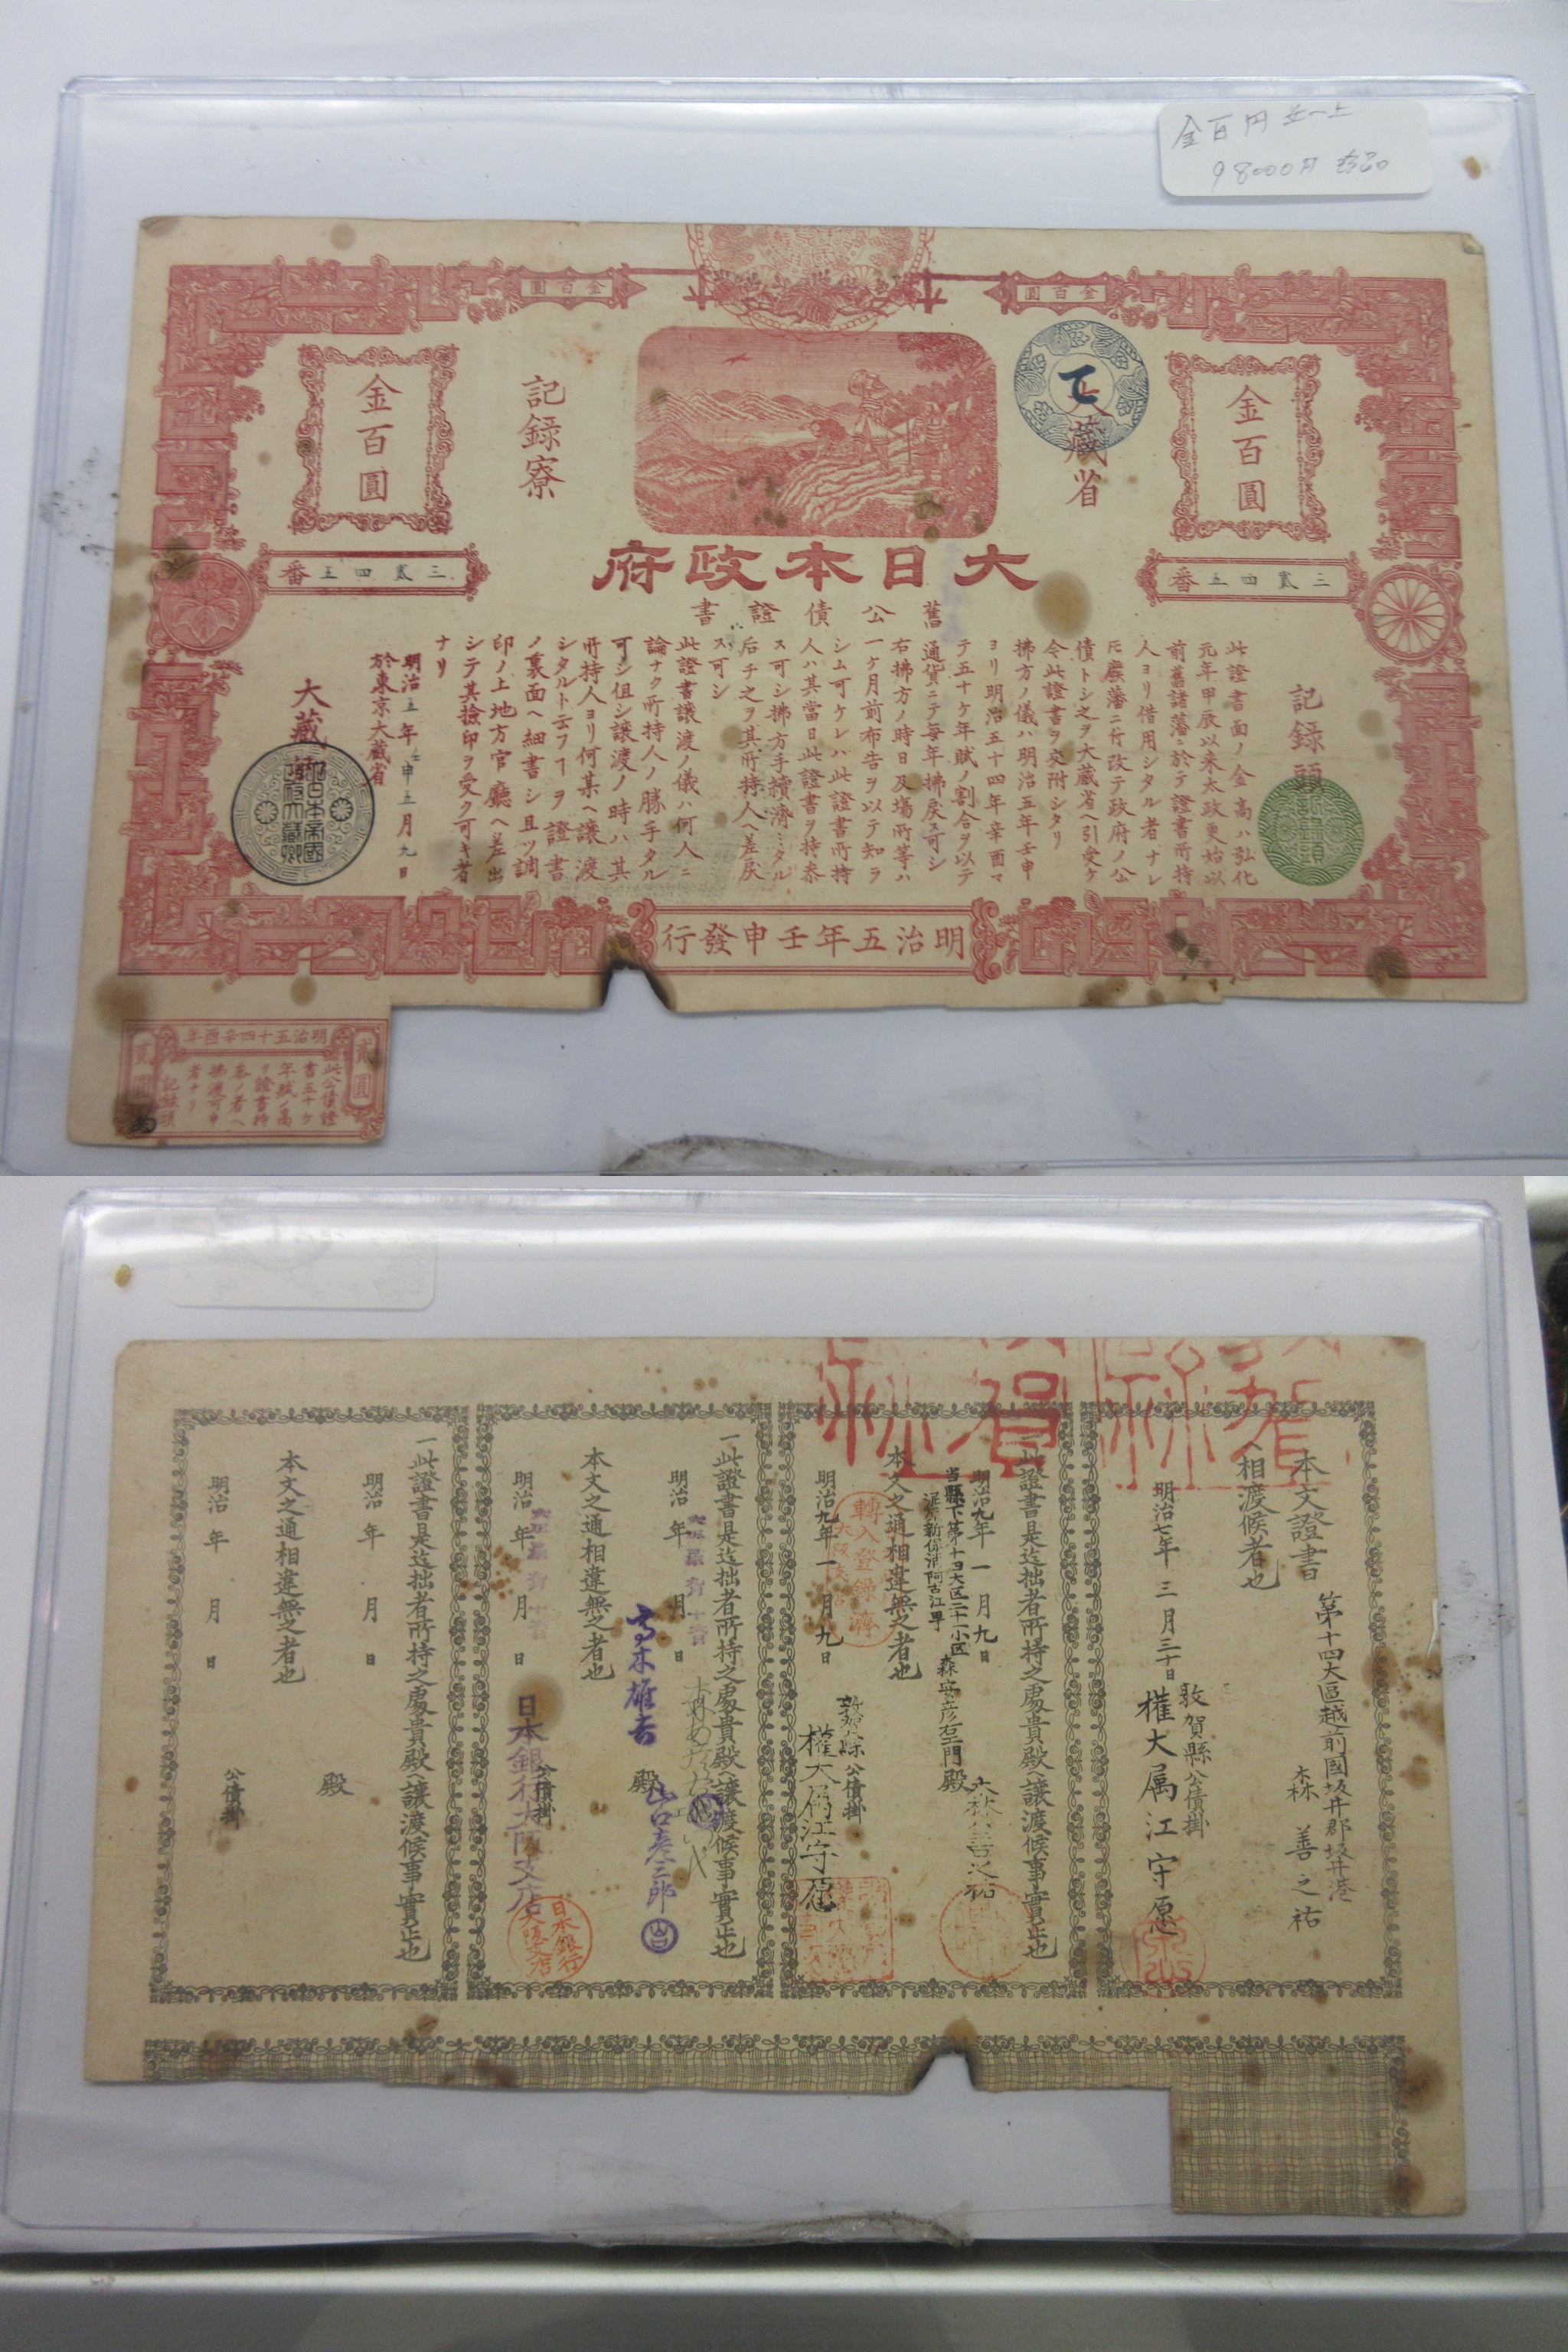 金百円 並ー上
98000円 珍品
金百圓
金百圓
金百圓
大蔵省
記録寮
金百圓
三貮四五番
三貮四五番
大日本政府
舊公債證書
記録頭
此證書面ノ金高ハ弘化
元年甲辰以来太政更始以
前舊諸藩ニ於テ證書所持
人ヨリ借用シタル者ナレ
圧廢藩ニ付改テ政府ノ公
債トシ之ヲ大蔵省ヘ引受ケ
令此證書ヲ交附シタリ
拂方ノ儀ハ明治五年壬申
ヨリ明治五十四年辛酉マ
テ五十ケ年賦ノ割合ヲ以テ
通貨ニテ毎年拂戻ス可シ
右拂方ノ時日及場所等ハ
一ケ月前布告ヲ以テ知ラ
シム可ケレハ此證書所持
人ハ其當日此證書ヲ持参
ス可シ拂方手續濟ミタル
后チ之ヲ其所持人ヘ差戻
ス可シ
此證書譲渡ノ儀ハ何人ニ
論ナク所持人ノ勝手タル
可シ但シ譲渡ノ時ハ其
所持人ヨリ何某ヘ譲渡
シタルト云フヿヲ證書
ノ裏面ヘ細書シ且ツ調
印ノ上地方官廳ヘ差出
シテ其捡印ヲ受ク可キ者
ナリ
明治五年壬申五月九日
於東京大蔵省
大蔵卿
明治五年壬申發行
明治五十四辛酉年
貮圓
貮圓
此公債證
書五十ケ
年賦ノ高
ヲ證書持
参ノ者ヘ
拂渡可申
者ナリ
記録頭
本文證書
第十四大區越前國坂井郡坂井港
森善之祐
ヘ相渡候者也
明治七年三月三十日
敦賀縣公債掛
権大属江守愿
一此證書是迄拙者所持之處貴殿ヘ譲渡候事實正也
明治九年一月九日
当縣下第十四大区二十一小区
森善之祐
殿
本文之通相違無之者也
明治九年一月九日
敦賀縣公債掛
権大属江守愿
轉入登録濟
一此證書是迄拙者所持之處貴殿ヘ譲渡候事實正也
明治年月日
山口彦三郎
髙木雄吉
殿
本文之通相違無之者也
明治年月日
公債掛
日本銀行大阪支店
日本銀行
大阪支店
一此證書是迄拙者所持之處貴殿ヘ譲渡候事實正也
明治年月日
殿
本文之通相違無之者也
明治年月日
公債掛